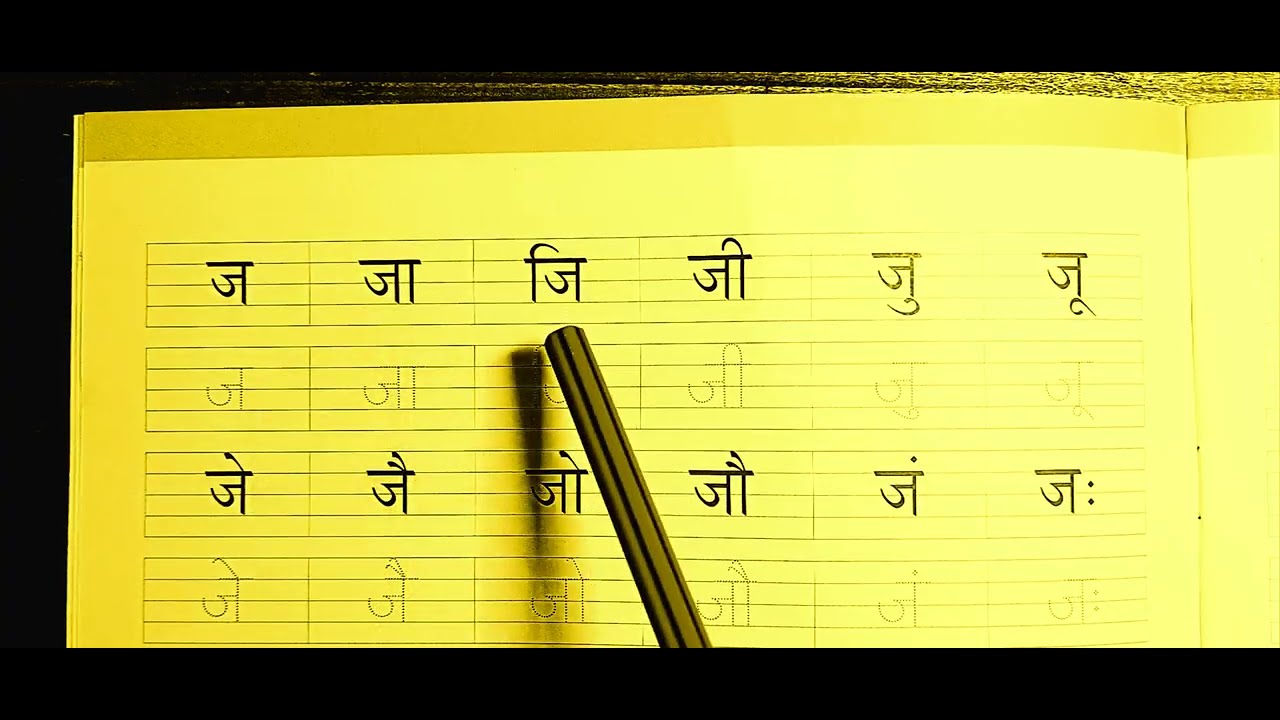 ज जा जि जी जु जू
ज जा जी जु जू
जे जै जो जौ जं जः
जे जै जो जौ जं जः